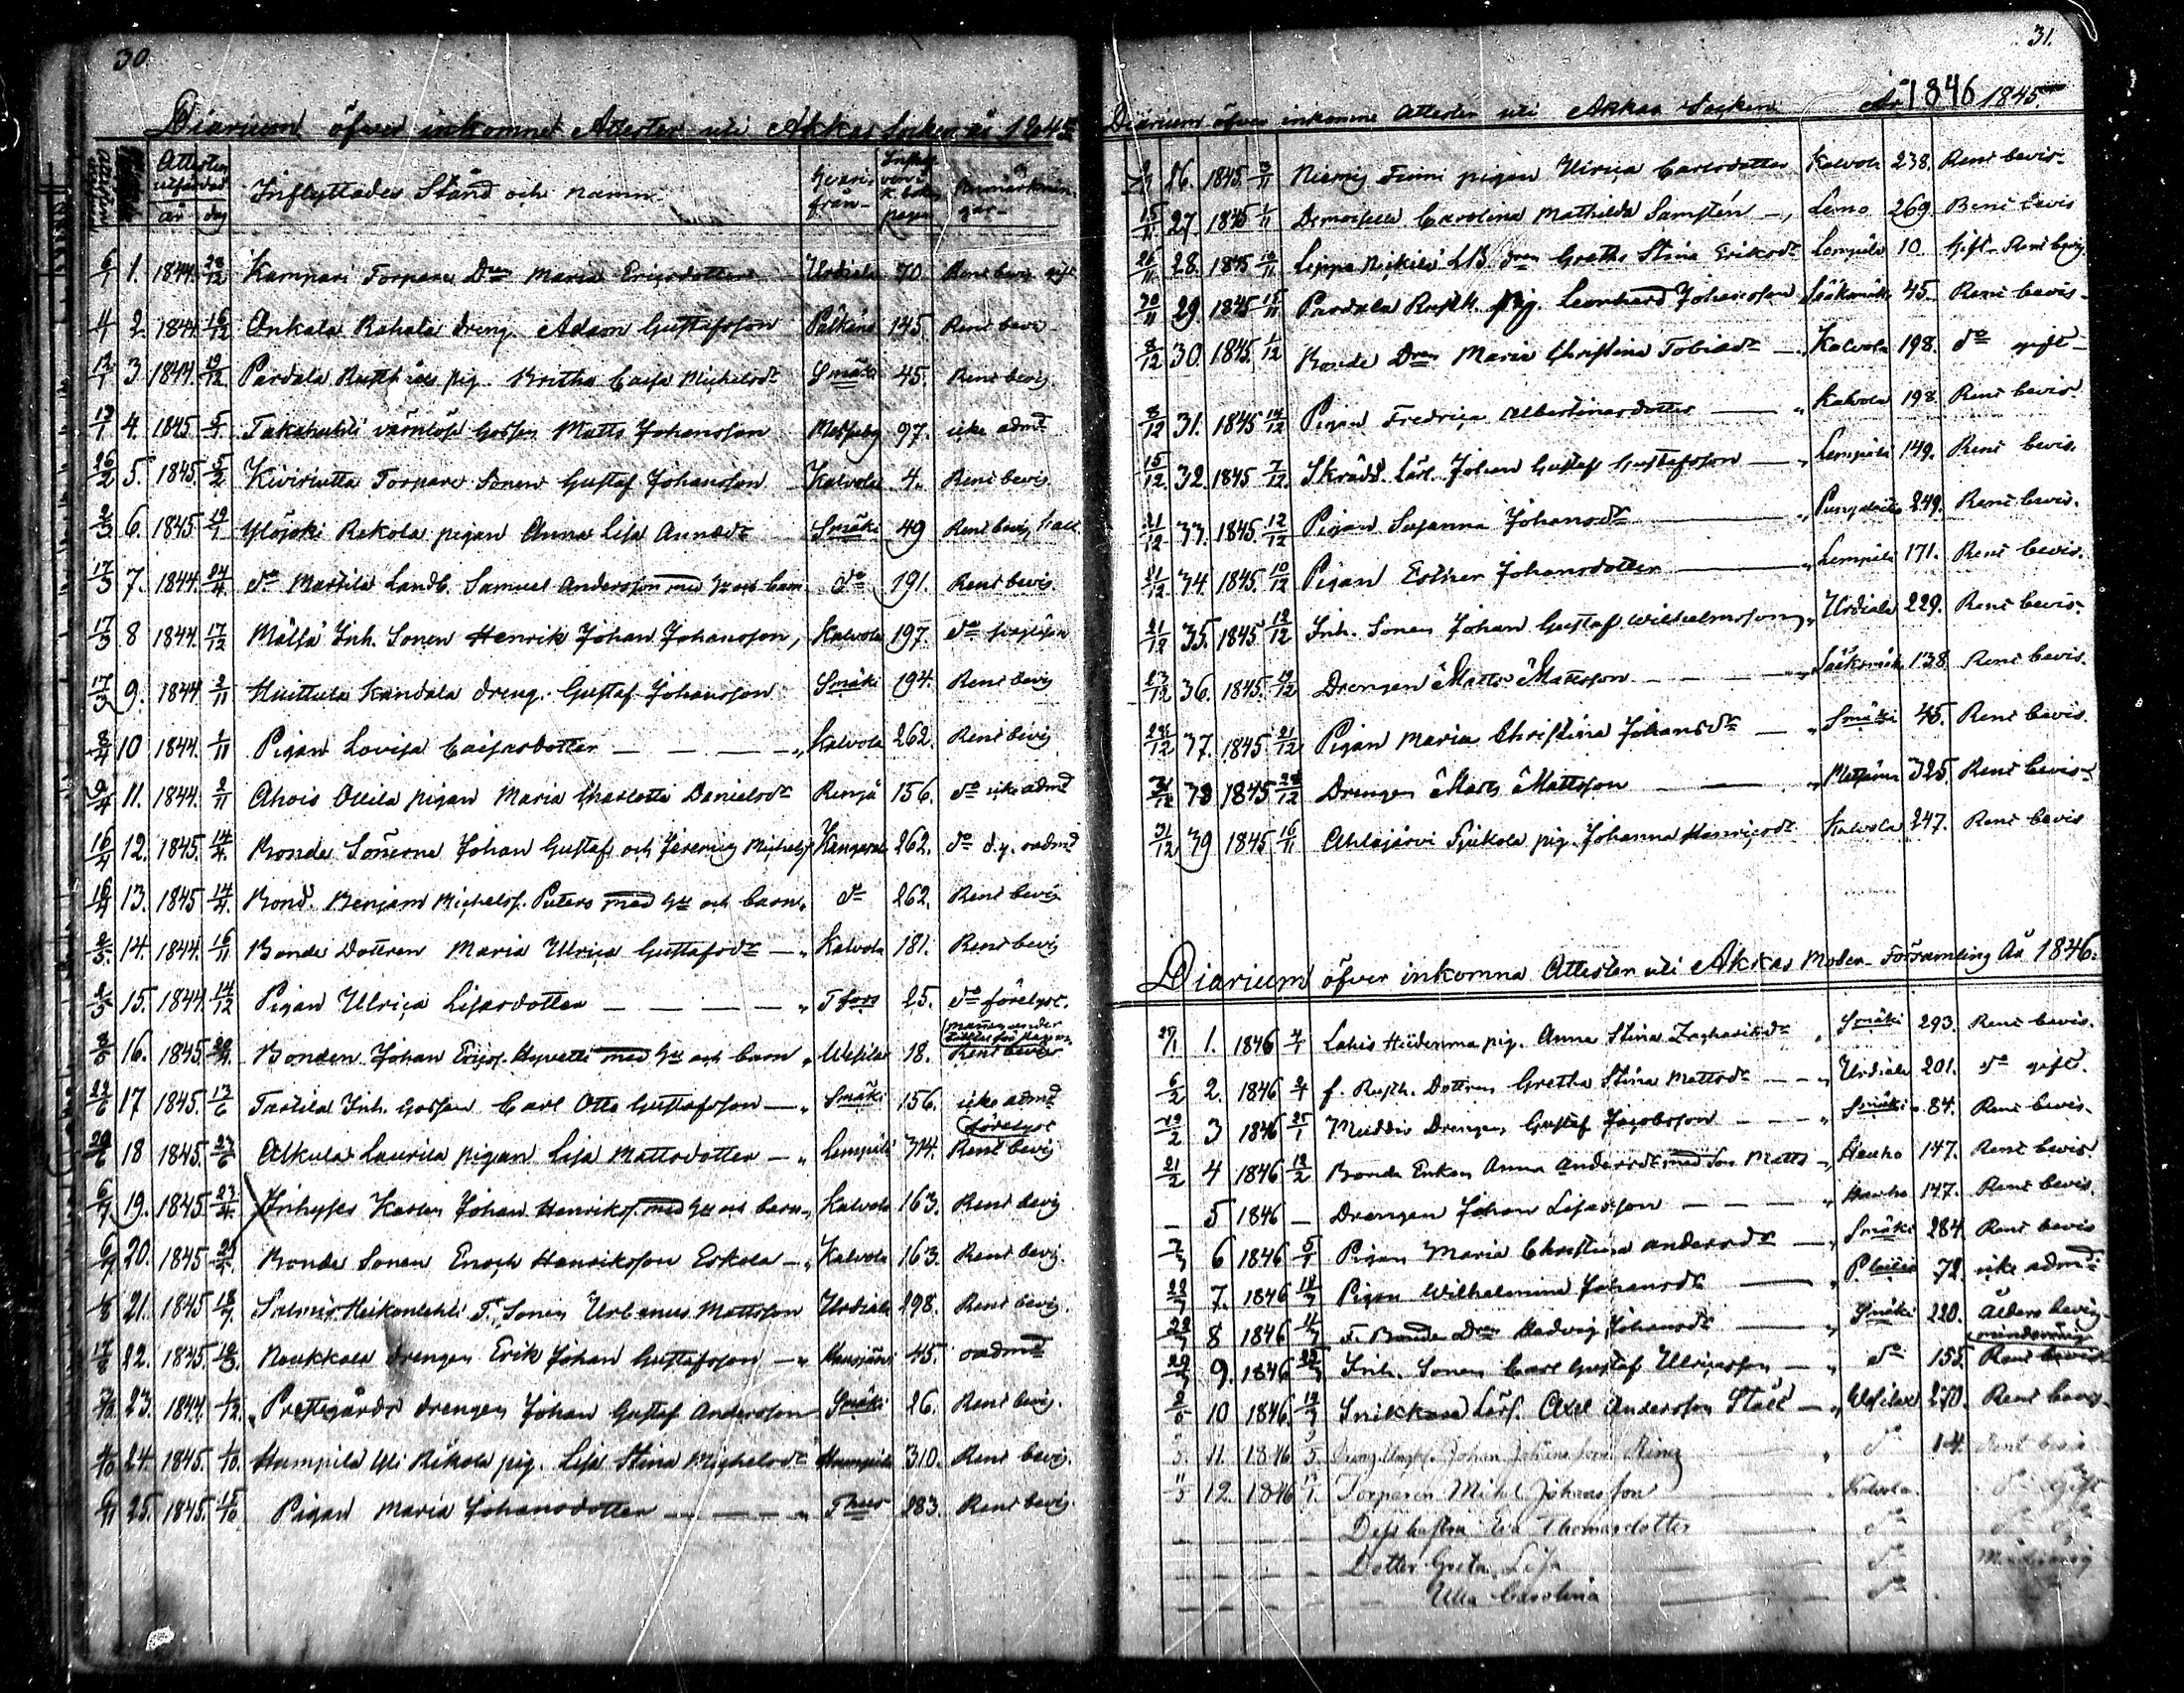 30.
Diarium öfver inkomne Attester uti Akkas Socken år 1845
Attesten utfärdad
år dag
Inflyttades Stånd och namn
hvarifrån
Anmärkningar
6/1 1. 1844. 28/12 Kampari Torpare Dren Maria Ericsdotter Urdiala 70. Rent bevis gift
2. 1844. 16/12 Ankala Rahala dreng. Adam Gustafsson Pälkäne 145. Rent bevis
12/1 3 1844. 19/12 Pardala Rusth. pig. Britha Caisa Michelsdr Smäki 45. Rent bevis.
13/1 4. 1845 5/1 Takahuhti värnlöse Gossen Matts Johansson Messuby 97. icke admd
26/2 5. 1845. 5/2 Kiviriutta Torpare Sonen Gustaf Johansson Kalvola 4. Rent bevis.
2/3 6. 1845 19/1 Ylöjoki Rekola pigan Anna Lisa Annædr Smäki 49 Rent bevis
17/3 7. 1844. 24/4 do Marttila Landb. Samuel Andersson med hu och barn do 191. Rent bevis.
17/3 8 1844. 17/12 Mälsä Inh. Sonen Henrik Johan Johansson, Kalvola 197. do
17/3 9. 1844 2/11 Huittula Kandola dreng. Gustaf Johansson Smäki 194. Rent bevis
8/4 10 1844. 1/11 Pigan Lovisa Caisasdotter Kalvola 262. Rent bevis
9/4 11. 1844. 2/11 Ahois Ollila pigan Maria Charlotta Danielsdr Renjä 156. do icke admd
16/4 12. 1845. 14/4. Bonde Sönerne Johan Gustaf och Jeremias Michelss. Kangasala 262. do d.y. oadmd
16/4 13. 1845 14/4. Bond. Benjam Michelss. Puters med hu och barn do 262. Rent bevis
2/5. 14. 1844. 16/11 Bonde Dottren Maria Ulrica Gustafsdr Kalvola 181. Rent bevis
2/5 15. 1844 14/12 Pigan Ulrica Lisasdotter Tfors 25. do förelyst.
16. 1845 Bonden Johan Ericss. Hyvetti med hu och barn Wesilax 18. Rent bevis
22/6 17 1845. 13/6 Tastila Inh. Gossen Carl Otto Gustafsson Smäki 156. icke admd
29/6 18 1845. 27/6 Alkula Laurila pigan Lisa Mattsdotter Lempälä 314. förelyst Rent bevis
6/7 19. 1845 27/4. Inhyses Karlen Johan Henrikss. med hu och barn Kalvola 163. Rent bevis
6/7 20. 1845 Bonde Sonen Enoch Henriksson Eskola Kalvola 163. Rent bevis.
21. 1845 18/7. Heikonlehti T. Sonen Urbanus Mattsson Urdiala 298. Rent bevis.
17/8 22. 1845. Naukkala drengen Erik Johan Gustafsson Hausjärvi 45. oadmd
23. 1844. Prestegårds drengen Johan Gustaf Andersson Smäki 26. Rent bevis.
24. 1845. Humpila Uli Rikola pig. Lisa Stina Michelsdr Humpila 310. Rent bevis.
25. 1845. 15/10 Pigan Maria Johansdotter 283. Rent bevis.
31.
Diarium öfver inkomne Attester uti Akkas Socken År 1846 1845.
26. 1845. 3/11 Niemis Finni pigan Ulrica Carlsdotter Kalvola 238. Rent bevis
15/11 27. 1845 1/11 Demoiselle Carolina Mathilda Samstén Lemo 269. Rent bevis
26/11. 28. 1845 10/11 Leppe Nickilä LB. dren Gretha Stina Eriksdr Lempälä 10. Gift Rent bevis.
30/11 29. 1845 15/11 Pardala Rusth. Leonhard Johansson Sääksmäki 45. Rent bevis
8/12 30. 1845. 1/12 Bonde Dren Maria Christina Tobiasdr Kalvola 198. do gift
8/12 31. 1845 14/12 Pigan Fredrica Albertinasdotter Kalvola 198. Rent bevis.
15/12. 32. 1845 7/12. Skrädd. Lärl. Johan Gustaf Gustafsson Lempälä 149. Rent bevis.
21/12 33. 1845. 12/12 Pigan Susanna Johansdr Pungalaitio 249. Rent bevis.
21/12. 34. 1845. 10/12 Pigan Esther Johansdotter Lempälä 171. Rent bevis.
21/12 35. 1845 12/12 Inh. Sonen Johan Gustaf Wilhelmsson Urdiala 229. Rent bevis.
23/12 36. 1845. 19/12 Drengen Matts Mattsson Sääksmäki 138 Rent bevis.
28/12 37. 1845 21/12 Pigan Maria Christina Johansdr Smäki 45. Rent bevis.
31/12 38 1845 28/12 Drengen Matts Mattsson 325. Rent bevis
31/12 39 1845 16/11 Ahlajärvi Sjukola pig. Johanna Henricsdr Kalvola 247. Rent bevis
Diarium öfver inkomna Attesten uti Akkas Moder-Församling År 1846.
27/1 1. 1846 Lahis Hiidenma pig. Anna Stina Zachariædr Smäki 293. Rent bevis.
6/2 2. 1846 f. Rusth. Dottren Gretha Stina Mattsdr Urdiala 201. do gift.
19/2 3 1846 25/1 Muddis Drengen Gustaf Jacobsson Smäki 84. Rent bevis.
21/2 4 1846 12/2 Bonde Enkan Anna Andersdr med Son Matts Hauho 147. Rent bevis
5 1846 Drengen Johan Lisasson Hauho 147. Rent bevis.
6 1846 Pigan Maria Christina Andersdr Smäki 284. Rent bevis
22/3 7. 1846 14/3 Pigan Wilhelmina Johansdr 72. icke admd
22/3 8 1846 F. Bonde Dren Hedvig Johansdr Smäki 220. Ålders bevis
9. 1846 Inh. Sonen Carl Gustaf Ulricasson do 155. minderårig Rent bevis
10 1846. Snikkare Lärl. Axel Andersson Ståhl Wesilax 270. Rent bevis
11. 1846 Johan Johansson Ring do 14. Rent bevis
12. 1846 Torparen Mikl Johansson Kalvola do Gift
Dess hustru Eva Thomasdotter do do do
Dotter Greta Lisa do Minderårig
Ulla Carolina do